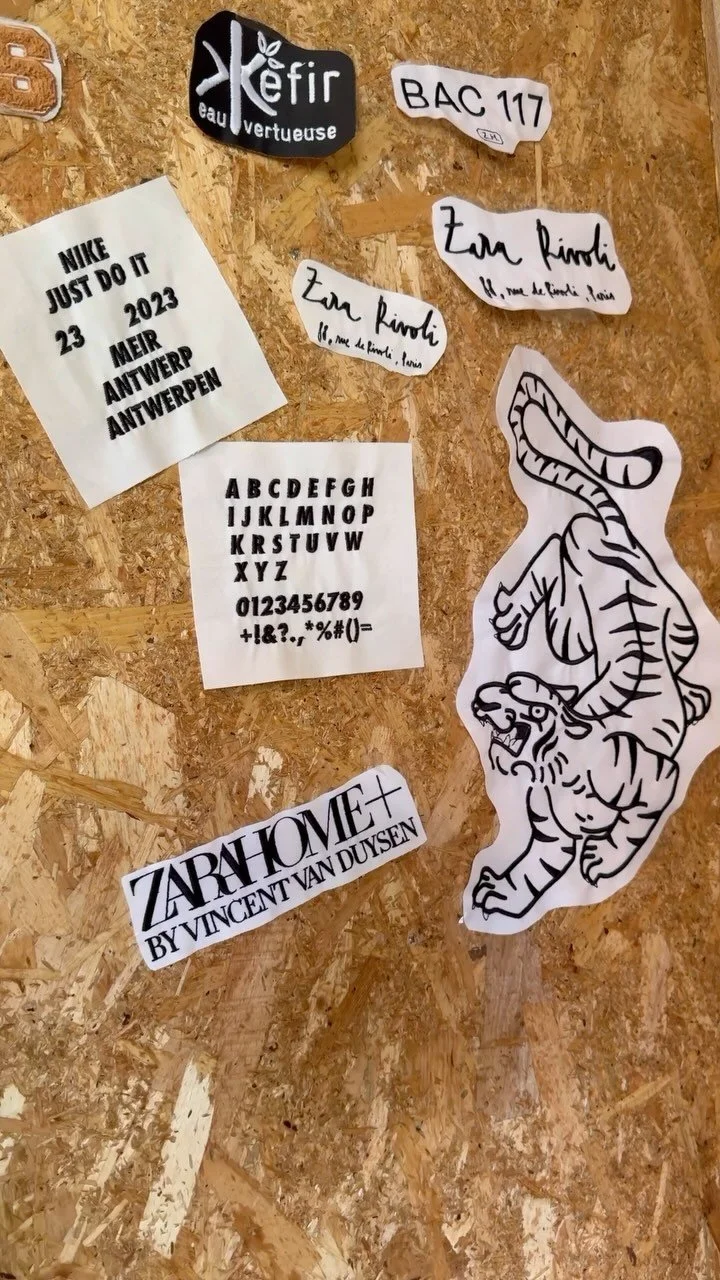 8
Kefir
eau vertueuse
BAC 117
Z.H.
Zara Rivoli
88, rue de Rivoli, Paris
Zara Rivoli
88, rue de Rivoli, Paris
NIKE
JUST DO IT
23 2023
MEIR
ANTWERP
ANTWERPEN
ABCDEFGH
IJKLMNOP
KRSTUVW
XYZ
0123456789
+!&?.,*%#()=
ZARAHOME+
BY VINCENT VAN DUYSEN